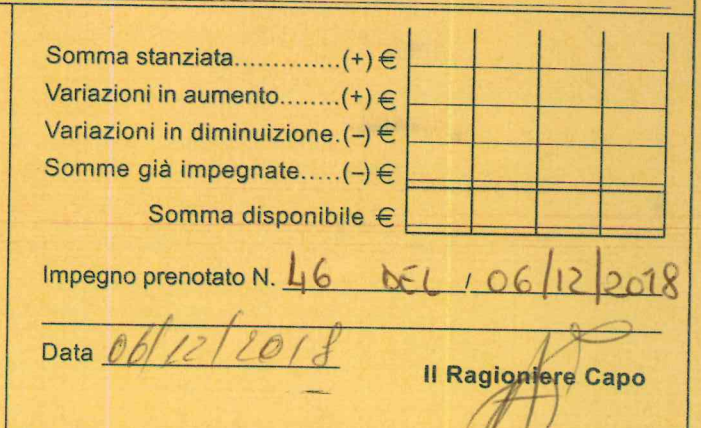 Somma stanziata..............(+) €
Variazioni in aumento........(+) €
Variazioni in diminuizione.(–) €
Somme già impegnate.....(–) €
Somma disponibile €
Impegno prenotato N. 46 DEL / 06/12/2018
Data 06/12/2018
Il Ragioniere Capo